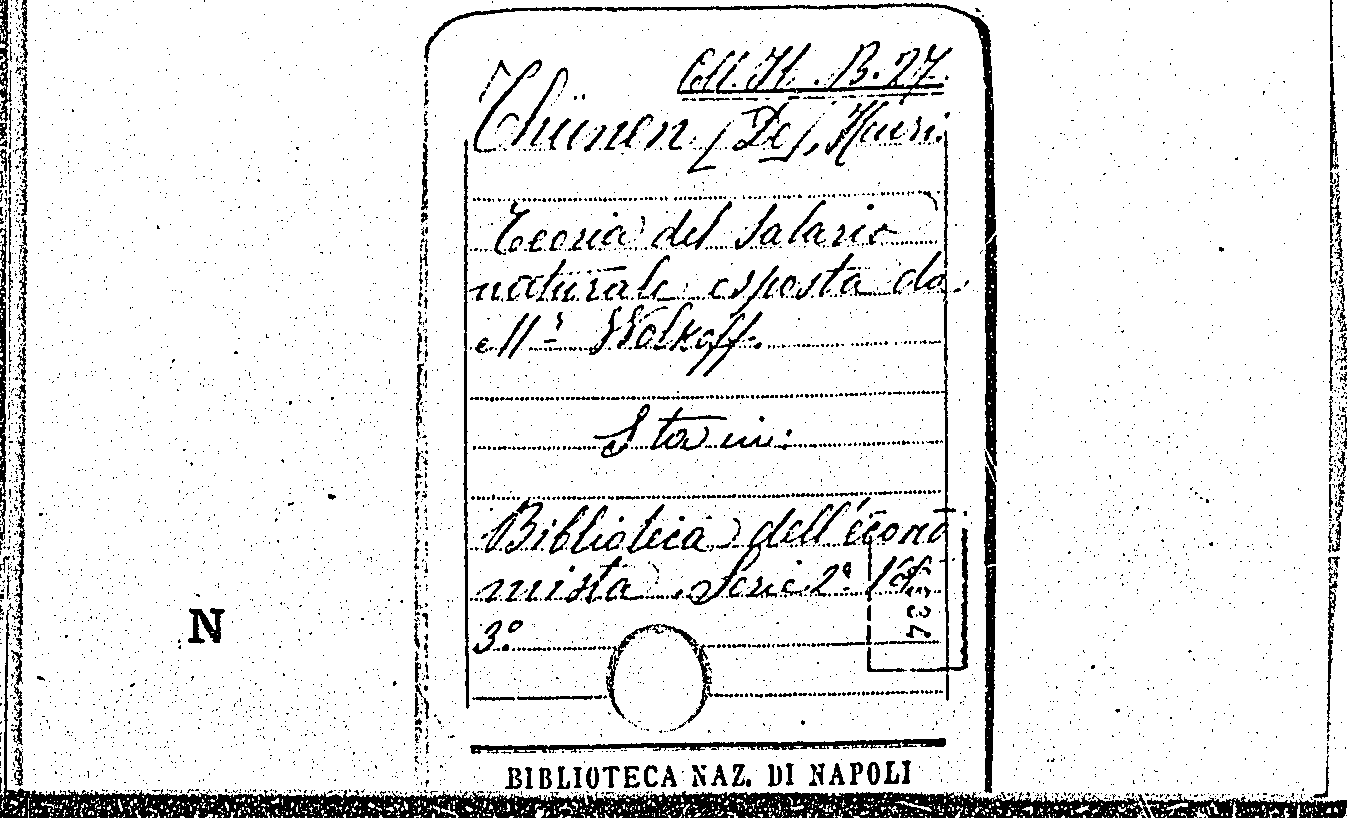 Coll. It. B. 27.
Thünen [De], Hauri.
Teoria del Salario
naturale esposta da
M.r Wolkoff.
Sta in:
Biblioteca dell'econo
mista. Serie 2ª. Vol.
3º
N
BIBLIOTECA NAZ. DI NAPOLI